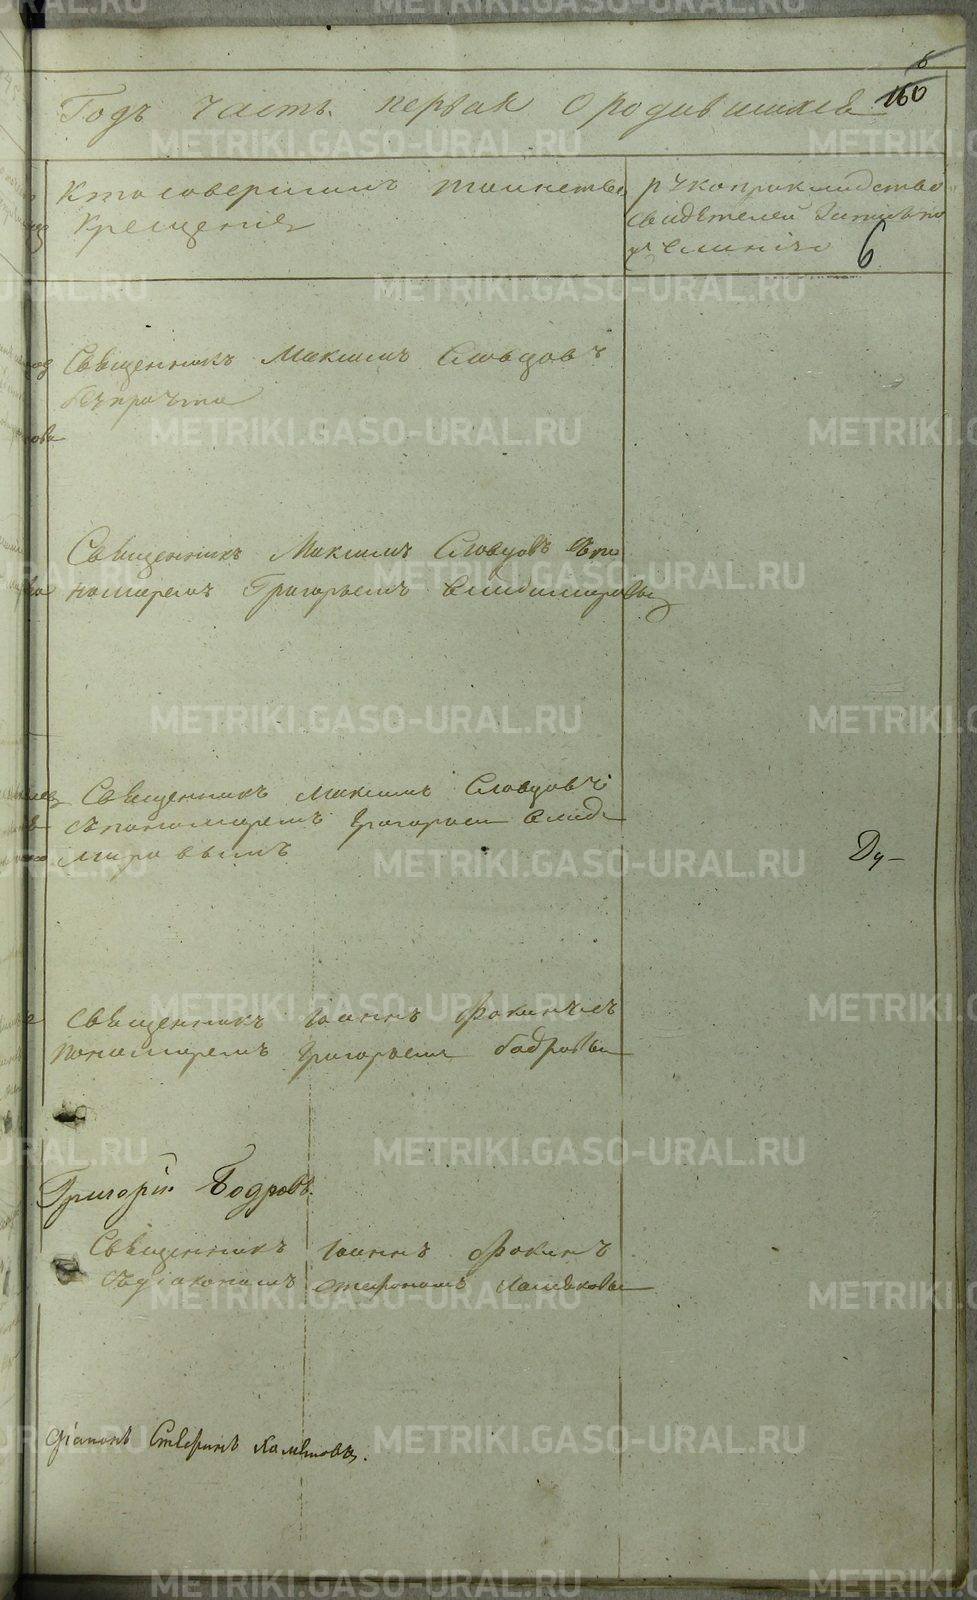 6
Годъ часть первая о родившихся 160
Кто совершалъ таинство
Крещенія
рукоприкладство
свидѣтелей записи по
желанію
6
Священникъ Максимъ Словцовъ
безъ причта
Священникъ Максимъ Словцовъ съ по
номаремъ Григорьемъ Владимировы
Священникъ Максимъ Словцовъ
съ пономаремъ Григорьем Влади
мировымъ
Ду-
Священникъ Іоаннъ Фокинъ съ
Пономаремъ Григорьем Бодровы
Григорій Бодровъ.
Священникъ Іоаннъ Фокинъ
съ діакономъ Стефаномъ
діаконъ Стефанъ
METRIKI.GASO-URAL.RU